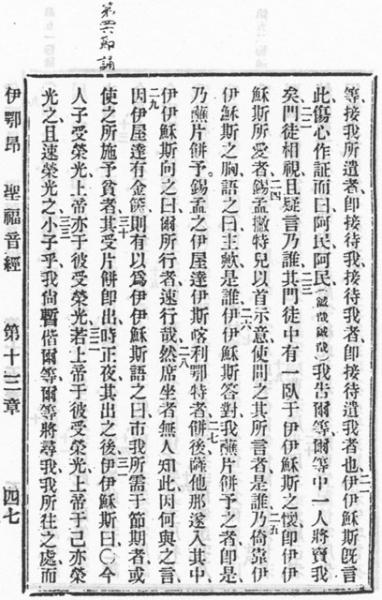 第 即誦
等接我所遣者卽接待我接待我者卽接待遣我者也二一伊伊穌斯旣言
此傷心作証而曰阿民阿民(誠哉誠哉)我告爾等爾等中一人將賣我
矣二二門徒相視且疑言乃誰二三其門徒中有一臥于伊伊穌斯之懷卽伊伊
穌斯所愛者二四錫孟撇特兒以首示意使問之其所言者是誰二五乃倚靠伊
伊穌斯之胸語之曰主歟是誰二六伊伊穌斯答對我蘸片餠予之者卽是
乃蘸片餠予錫孟之伊屋達伊斯喀利鄂特者二七餠後薩他那遂入其中
伊伊穌斯向之曰爾所行者速行哉二八然席坐者無人知此因何與之言
二九因伊屋達有金篋則有以爲伊伊穌斯語之曰市我所需于節期者或
使之所施予貧者三十其受片餠卽出時正夜三一其出之後伊伊穌斯曰○今
人子受榮光上帝亦于彼受榮光三二若上帝于彼受榮光上帝于己亦榮
光之且速榮光之三三小子乎我尙暫偕爾等爾等將尋我我所往之處而
伊鄂昂 聖福音經 第十三章 四七